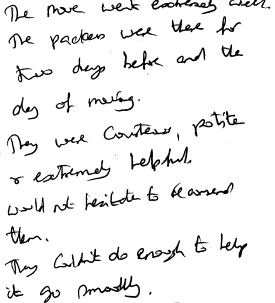 The move went extremely well.
The packers were there for
two days before and the
day of moving.
They were Courteous, polite
& extremely helpful.
would not hesitate to
them.
They Couldn't do enough to help
it go smoothly.